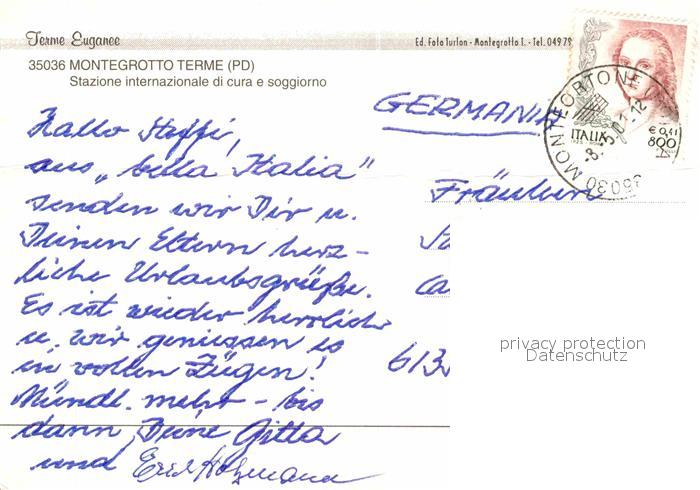 Terme Euganee
Ed. Foto Turlon - Montegrotto T. - Tel. 049 79
35036 MONTEGROTTO TERME (PD)
Stazione internazionale di cura e soggiorno
GERMANIA
Hallo Steffi,
aus "bella Italia"
senden wir Dir u.
Deinen Eltern herz-
liche Urlaubsgrüße.
Es ist wieder herrlich
u. wir geniessen es
in vollen Zügen!
Mündl. mehr - bis
dann, Deine Gitta
und
Fräulein
613
ITALIA
€ 0,41
800
35030 MONTEGROTTO
-8.5.01-12
privacy protection
Datenschutz